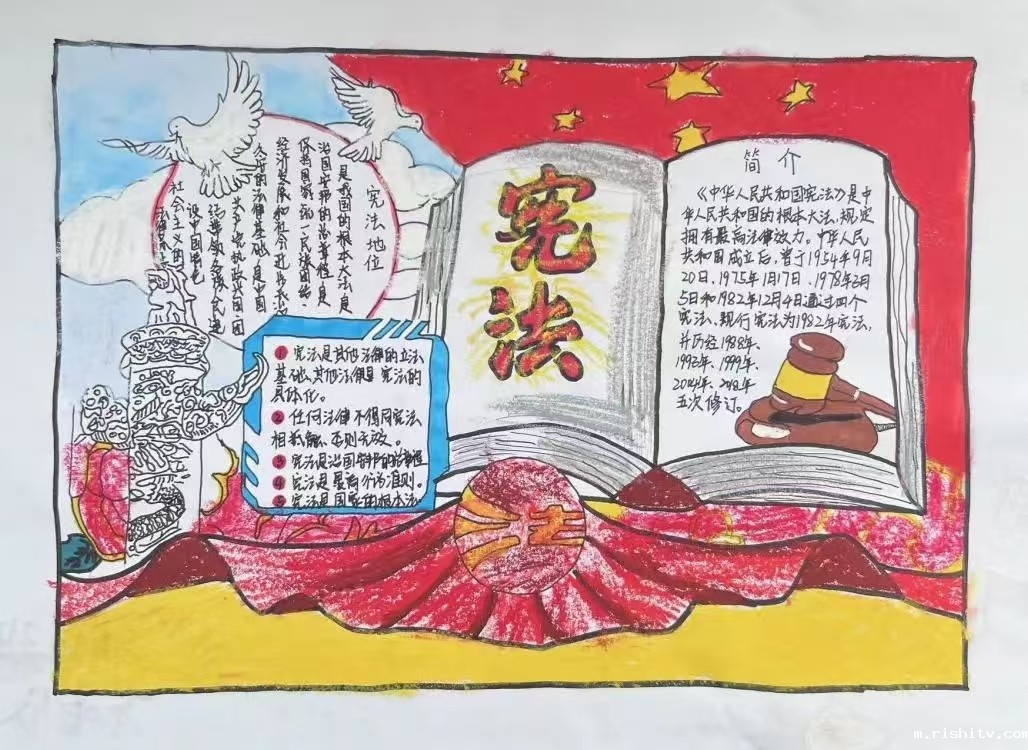 宪法地位
是我国的根本大法是
治国安邦的总章程是
保持国家统一民族团结
经济发展和社会进步长治
久安的法律基础是中国
共产党执政兴国团
结带领全族人民建
设中国特色
社会主义的
法律保证
宪
法
简介
《中华人民共和国宪法》是中
华人民共和国的根本大法,规定
拥有最高法律效力。中华人民
共和国成立后,曾于1954年9月
20日、1975年1月17日、1978年3月
5日和1982年12月4日通过四个
宪法、现行宪法为1982年宪法,
并历经1988年、
1993年、1999年、
2004年、2018年
五次修订。
1 宪法是其他法律的立法
基础、其他法律是宪法的
具体化。
2 任何法律不得同宪法
相抵触、否则无效。
3 宪法是治国安邦的总章程
4 宪法是最高行为准则。
5 宪法是国家的根本法
法
m.rishitv.com